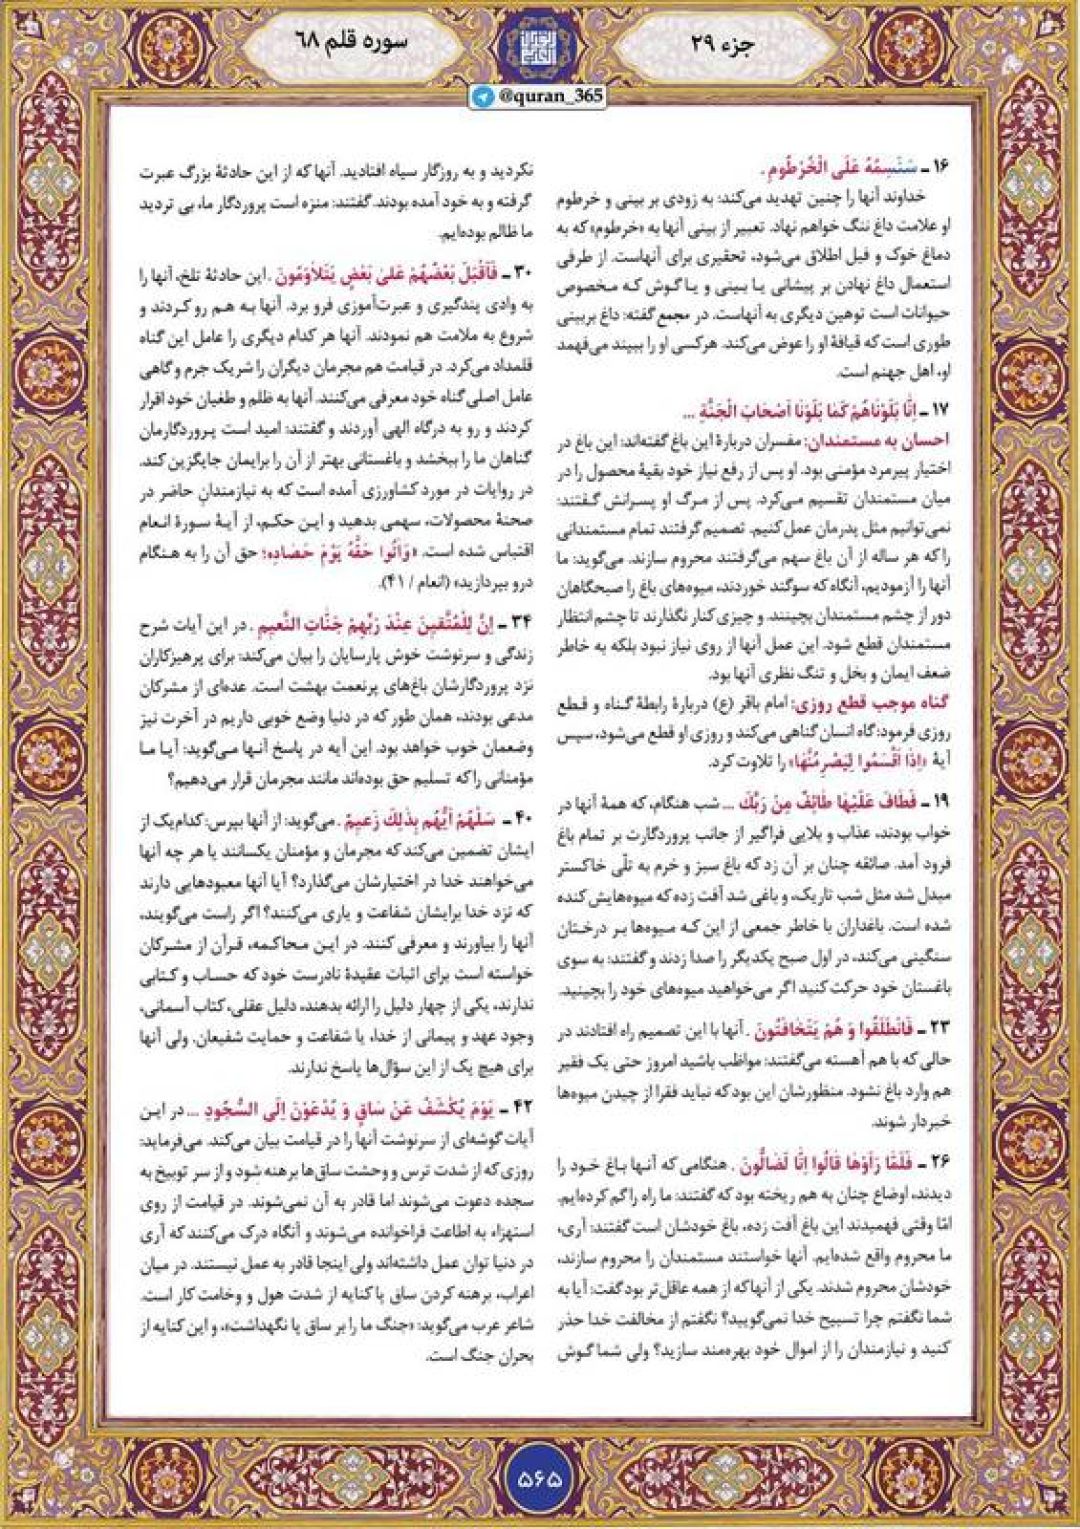 جزء ۲۹
سوره قلم ۶۸
@quran_365
۱۶ ـ سَنَسِمُهُ عَلَی الْخُرْطُومِ .
خداوند آنها را چنین تهدید می‌کند: به زودی بر بینی و خرطوم
او علامت داغ ننگ خواهم نهاد. تعبیر از بینی آنها به «خرطوم» که به
دماغ خوک و فیل اطلاق می‌شود، تحقیری برای آنهاست. از طرفی
استعمال داغ نهادن بر پیشانی یا بینی و یا گوش که مخصوص
حیوانات است توهین دیگری به آنهاست. در مجمع گفته: داغ بربینی
طوری است که قیافهٔ او را عوض می‌کند. هرکسی او را ببیند می‌فهمد
او، اهل جهنم است.
۱۷ ـ اِنّا بَلَوْناهُمْ کَما بَلَوْنا اَصْحابَ الْجَنَّةِ ...
احسان به مستمندان: مفسران دربارهٔ این باغ گفته‌اند: این باغ در
اختیار پیرمرد مؤمنی بود. او پس از رفع نیاز خود بقیهٔ محصول را در
میان مستمندان تقسیم می‌کرد. پس از مرگ او پسرانش گفتند:
نمی‌توانیم مثل پدرمان عمل کنیم. تصمیم گرفتند تمام مستمندانی
را که هر ساله از آن باغ سهم می‌گرفتند محروم سازند. می‌گوید: ما
آنها را آزمودیم، آنگاه که سوگند خوردند، میوه‌های باغ را صبحگاهان
دور از چشم مستمندان بچینند. و چیزی کنار نگذارند تا چشم انتظار
مستمندان قطع شود. این عمل آنها از روی نیاز نبود بلکه به خاطر
ضعف ایمان و بخل و تنگ نظری آنها بود.
گناه موجب قطع روزی: امام باقر (ع) دربارهٔ رابطهٔ گناه و قطع
روزی فرمود: گاه انسان گناهی می‌کند و روزی او قطع می‌شود، سپس
آیهٔ «اِذْ اَقْسَمُوا لَیَصْرِمُنَّها» را تلاوت کرد.
۱۹ ـ فَطافَ عَلَیْها طائِفٌ مِنْ رَبِّکَ ... شب هنگام، که همهٔ آنها در
خواب بودند، عذاب و بلایی فراگیر از جانب پروردگارت بر تمام باغ
فرود آمد. صائقه چنان بر آن زد که باغ سبز و خرم به تلّی خاکستر
مبدل شد مثل شب تاریک، و باغی شد آفت زده که میوه‌هایش کنده
شده است. باغداران با خاطر جمعی از این که میوه‌ها بر درختان
سنگینی می‌کند، در اول صبح یکدیگر را صدا زدند و گفتند: به سوی
باغستان خود حرکت کنید اگر می‌خواهید میوه‌های خود را بچینید.
۲۳ ـ فَانْطَلَقُوا وَ هُمْ یَتَخافَتُونَ . آنها با این تصمیم راه افتادند در
حالی که با هم آهسته می‌گفتند: مواظب باشید امروز حتی یک فقیر
هم وارد باغ نشود. منظورشان این بود که نباید فقرا از چیدن میوه‌ها
خبردار شوند.
۲۶ ـ فَلَمّا رَأَوْها قالُوا اِنّا لَضالُّونَ . هنگامی که آنها باغ خود را
دیدند، اوضاع چنان به هم ریخته بود که گفتند: ما راه را گم کرده‌ایم.
امّا وقتی فهمیدند این باغ آفت زده، باغ خودشان است گفتند: آری،
ما محروم واقع شده‌ایم. آنها خواستند مستمندان را محروم سازند،
خودشان محروم شدند. یکی از آنها که از همه عاقل‌تر بود گفت: آیا به
شما نگفتم چرا تسبیح خدا نمی‌گویید؟ نگفتم از مخالفت خدا حذر
کنید و نیازمندان را از اموال خود بهره‌مند سازید؟ ولی شما گوش
نکردید و به روزگار سیاه افتادید. آنها که از این حادثهٔ بزرگ عبرت
گرفته و به خود آمده بودند. گفتند: منزه است پروردگار ما، بی تردید
ما ظالم بوده‌ایم.
۳۰ ـ فَاَقْبَلَ بَعْضُهُمْ عَلیٰ بَعْضٍ یَتَلاوَمُونَ . این حادثهٔ تلخ، آنها را
به وادی پندگیری و عبرت‌آموزی فرو برد. آنها به هم رو کردند و
شروع به ملامت هم نمودند. آنها هر کدام دیگری را عامل این گناه
قلمداد می‌کرد. در قیامت هم مجرمان دیگران را شریک جرم و گاهی
عامل اصلی گناه خود معرفی می‌کنند. آنها به ظلم و طغیان خود اقرار
کردند و رو به درگاه الهی آوردند و گفتند: امید است پروردگارمان
گناهان ما را ببخشد و باغستانی بهتر از آن را برایمان جایگزین کند.
در روایات در مورد کشاورزی آمده است که به نیازمندانِ حاضر در
صحنهٔ محصولات، سهمی بدهید و این حکم، از آیهٔ سورهٔ انعام
اقتباس شده است. «وَ آتُوا حَقَّهُ یَوْمَ حَصادِه؛ حق آن را به هنگام
درو بپردازید» (انعام / ۴۱).
۳۴ ـ اِنَّ لِلْمُتَّقینَ عِنْدَ رَبِّهِمْ جَنّاتِ النَّعیمِ . در این آیات شرح
زندگی و سرنوشت خوش پارسایان را بیان می‌کند: برای پرهیزکاران
نزد پروردگارشان باغ‌های پرنعمت بهشت است. عده‌ای از مشرکان
مدعی بودند، همان طور که در دنیا وضع خوبی داریم در آخرت نیز
وضعمان خوب خواهد بود. این آیه در پاسخ آنها می‌گوید: آیا ما
مؤمنانی را که تسلیم حق بوده‌اند مانند مجرمان قرار می‌دهیم؟
۴۰ ـ سَلْهُمْ اَیُّهُمْ بِذٰلِکَ زَعیمٌ . می‌گوید: از آنها بپرس: کدام‌یک از
ایشان تضمین می‌کند که مجرمان و مؤمنان یکسانند یا هر چه آنها
می‌خواهند خدا در اختیارشان می‌گذارد؟ آیا آنها معبودهایی دارند
که نزد خدا برایشان شفاعت و یاری می‌کنند؟ اگر راست می‌گویند،
آنها را بیاورند و معرفی کنند. در این محاکمه، قرآن از مشرکان
خواسته است برای اثبات عقیدهٔ نادرست خود که حساب و کتابی
ندارند، یکی از چهار دلیل را ارائه بدهند، دلیل عقلی، کتاب آسمانی،
وجود عهد و پیمانی از خدا، یا شفاعت و حمایت شفیعان. ولی آنها
برای هیچ یک از این سؤال‌ها پاسخ ندارند.
۴۲ ـ یَوْمَ یُکْشَفُ عَنْ ساقٍ وَ یُدْعَوْنَ اِلَی السُّجُودِ ... در این
آیات گوشه‌ای از سرنوشت آنها را در قیامت بیان می‌کند. می‌فرماید:
روزی که از شدت ترس و وحشت ساق‌ها برهنه شود و از سر توبیخ به
سجده دعوت می‌شوند اما قادر به آن نمی‌شوند. در قیامت از روی
استهزاء به اطاعت فراخوانده می‌شوند و آنگاه درک می‌کنند که آری
در دنیا توان عمل داشته‌اند ولی اینجا قادر به عمل نیستند. در میان
اعراب، برهنه کردن ساق پا کنایه از شدت هول و وخامت کار است.
شاعر عرب می‌گوید: «جنگ ما را بر ساق پا نگهداشت»، و این کنایه از
بحران جنگ است.
۵۶۵